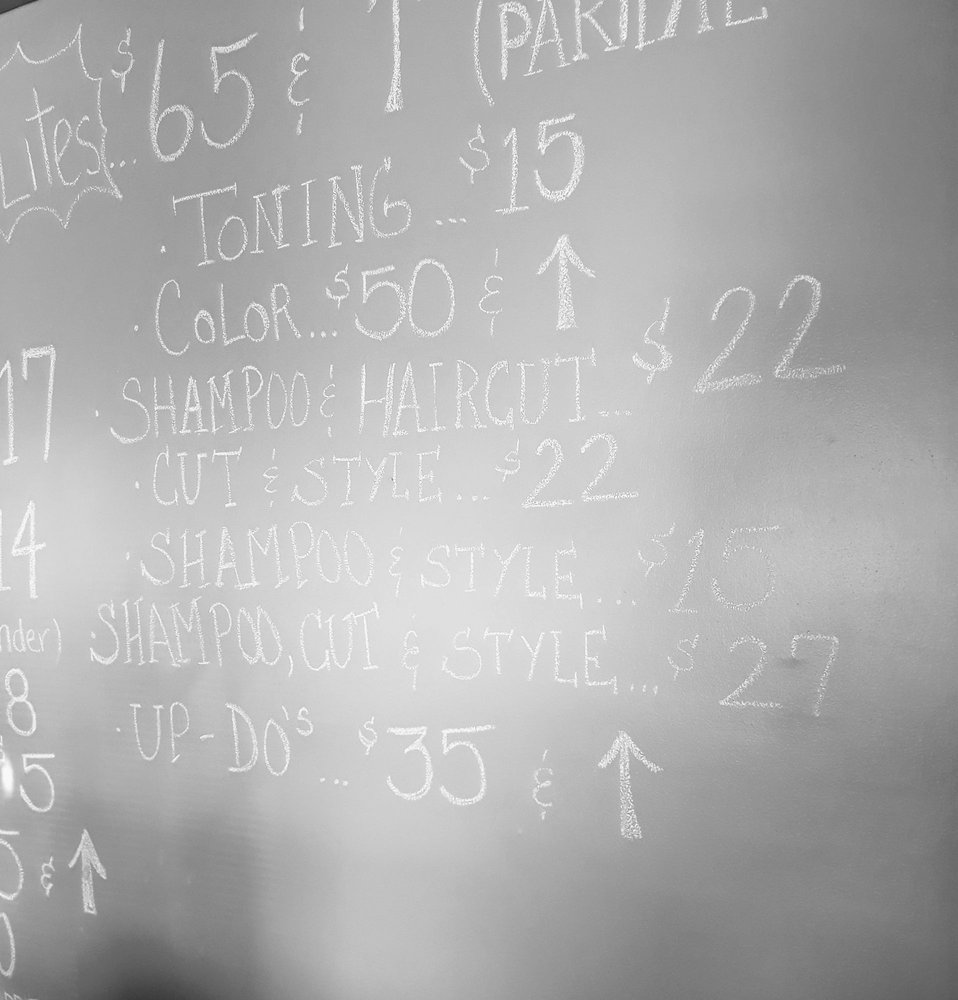 Lites... $65 & ↑ (PARTIAL
· TONING ... $15
· COLOR... $50 & ↑
· SHAMPOO & HAIRCUT... $22
· CUT & STYLE ... $22
· SHAMPOO & STYLE.... $15
· SHAMPOO, CUT & STYLE... $27
· UP-DO'S ... $35 & ↑
17
14
nder)
8
5
5 & ↑
0